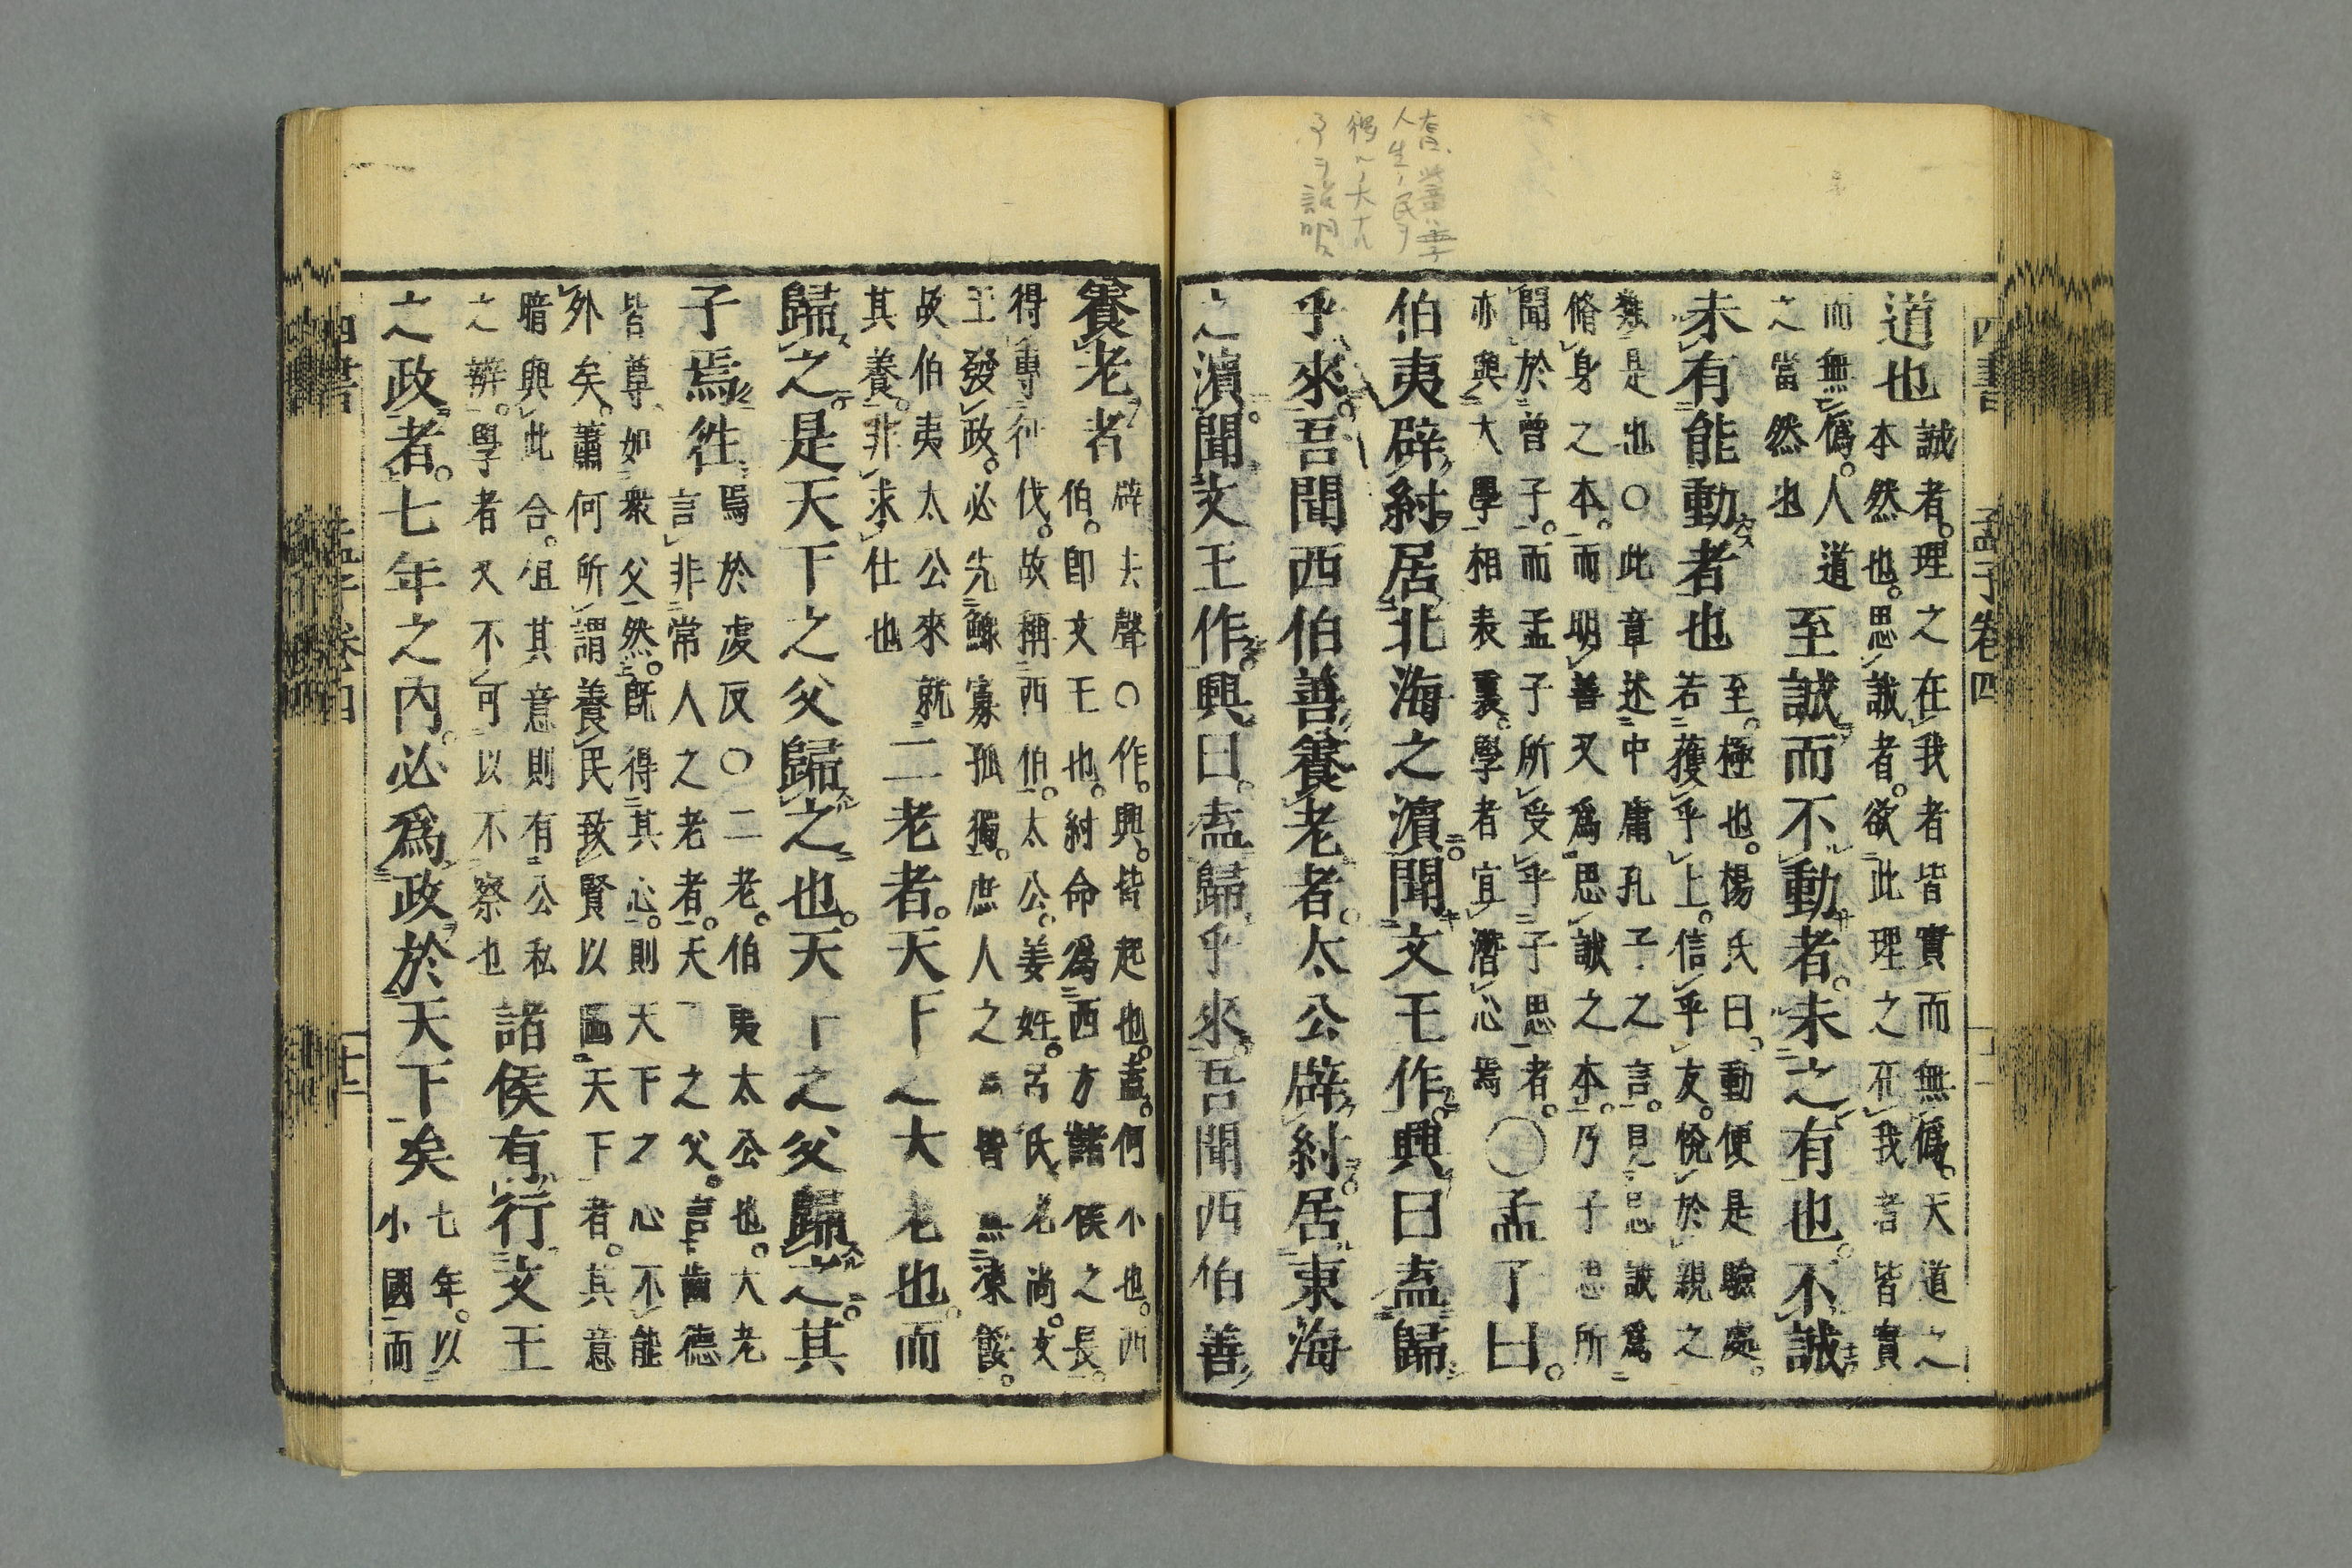 四書 孟子卷四
道也
誠者理之在我者皆實而無僞天道之
本然也思誠者欲此理之在我者皆實
而無僞人道
之當然也
至誠而不動者未之有也不誠
未有能動者也
至極也楊氏曰動便是驗處
若獲乎上信乎友悅於親之
類是也○此章述中庸孔子之言見思誠爲
脩身之本而明善又爲思誠之本乃子思所
聞於曾子而孟子所受乎子思者
亦與大學相表裏學者宜潛心焉
○孟子曰
伯夷辟紂居北海之濱聞文王作興曰盍歸
乎來吾聞西伯善養老者太公辟紂居東海
之濱聞文王作興曰盍歸乎來吾聞西伯善
養老者
辟去聲○作興皆起也盍何不也西
伯卽文王也紂命爲西方諸侯之長
得專征伐故稱西伯太公姜姓呂氏名尚文
王發政必先鰥寡孤獨庶人之老皆無凍餒
故伯夷太公來就
其養非求仕也
二老者天下之大老也而
歸之是天下之父歸之也天下之父歸之其
子焉往
焉於虔反○二老伯夷太公也大老
言非常人之老者天下之父言齒德
皆尊如衆父然旣得其心則天下之心不能
外矣蕭何所謂養民致賢以圖天下者其意
暗與此合但其意則有公私
之辨學者又不可以不察也
諸侯有行文王
之政者七年之內必爲政於天下矣
七年以
小國而
四書 孟子卷四 十二